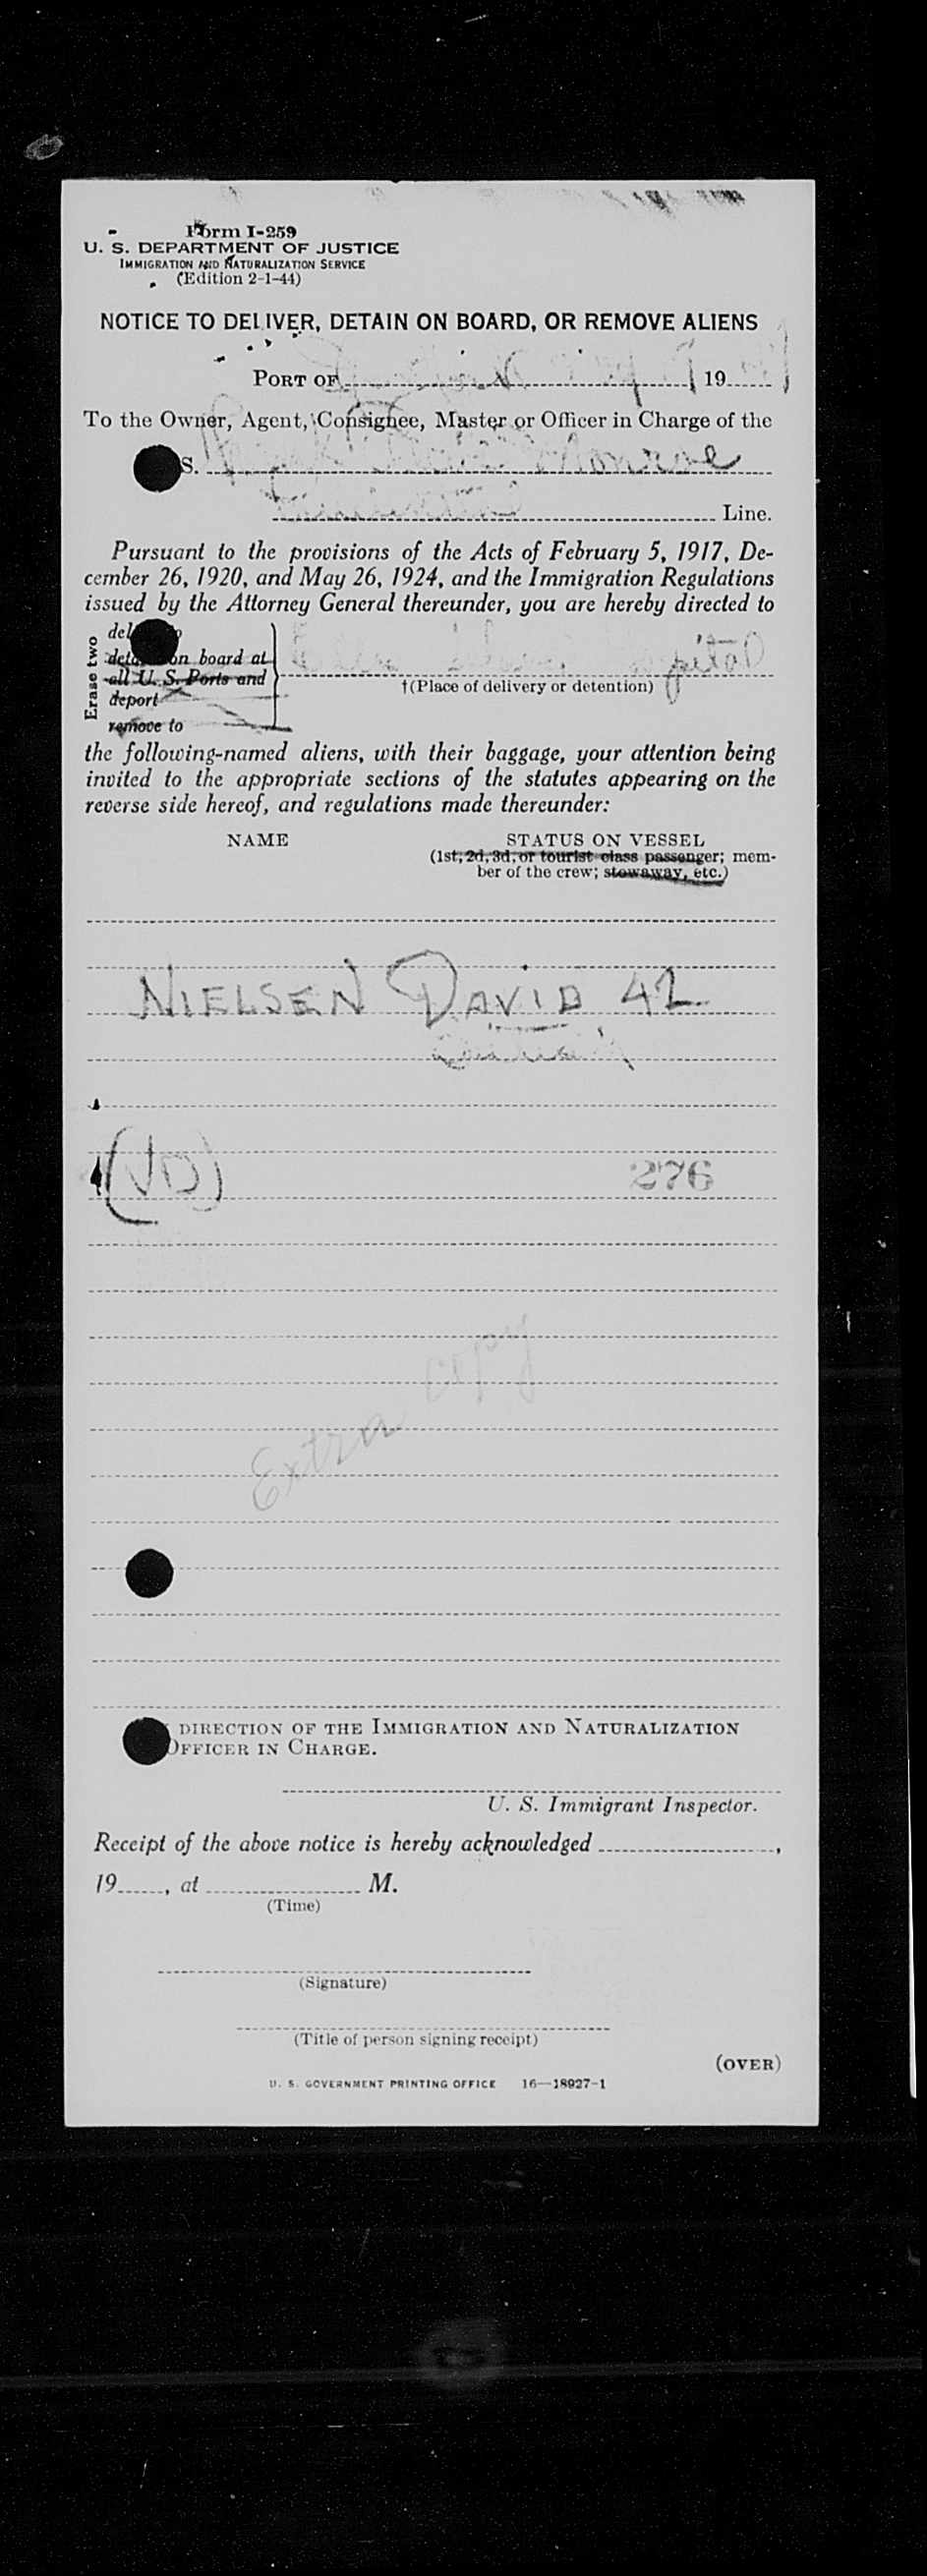 Form I-259
U. S. DEPARTMENT OF JUSTICE
IMMIGRATION AND NATURALIZATION SERVICE
(Edition 2-1-44)
NOTICE TO DELIVER, DETAIN ON BOARD, OR REMOVE ALIENS
PORT OF 19
To the Owner, Agent, Consignee, Master or Officer in Charge of the
S. Monroe
Line.
Pursuant to the provisions of the Acts of February 5, 1917, De-
cember 26, 1920, and May 26, 1924, and the Immigration Regulations
issued by the Attorney General thereunder, you are hereby directed to
Erase two
on board at
all U. S. Ports and
deport
remove to
†(Place of delivery or detention)
the following-named aliens, with their baggage, your attention being
invited to the appropriate sections of the statutes appearing on the
reverse side hereof, and regulations made thereunder:
NAME STATUS ON VESSEL
(1st, 2d, 3d, or tourist class passenger; mem-
ber of the crew; stowaway, etc.)
NIELSEN DAVID 42
(JD) 276
Extra copy
DIRECTION OF THE IMMIGRATION AND NATURALIZATION
OFFICER IN CHARGE.
U. S. Immigrant Inspector.
Receipt of the above notice is hereby acknowledged ,
19 , at M.
(Time)
(Signature)
(Title of person signing receipt)
(OVER)
U. S. GOVERNMENT PRINTING OFFICE 16—18927-1